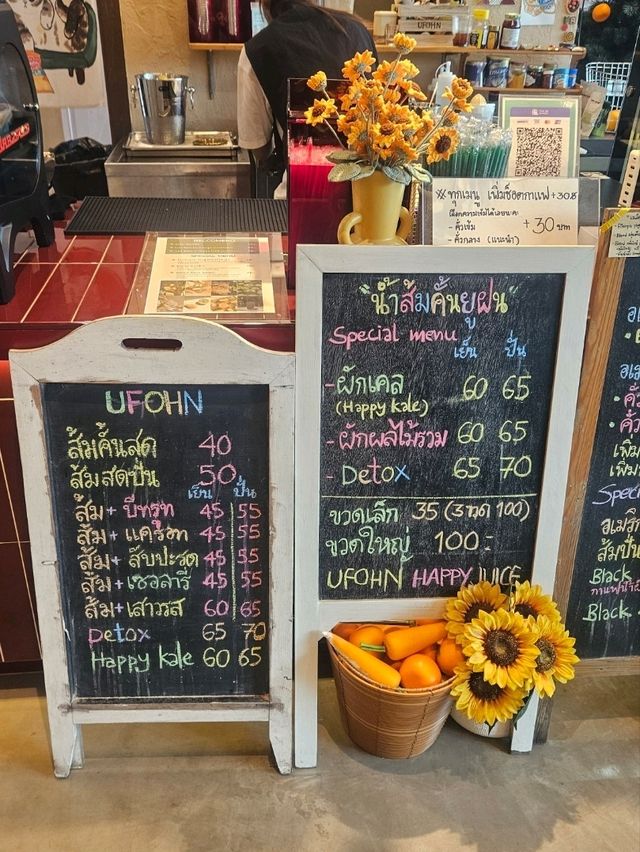 UFOHN
ส้มคั้นสด 40
ส้มสดปั่น 50
เย็น ปั่น
ส้ม+ บีทรูท 45 55
ส้ม+ แครอท 45 55
ส้ม+ สับปะรด 45 55
ส้ม+ เซเลอรี่ 45 55
ส้ม+ เสาวรส 60 65
Detox 65 70
Happy Kale 60 65
"น้ำส้มคั้นยูฝน"
Special menu
เย็น ปั่น
-ผักเคล 60 65
(Happy Kale)
-ผักผลไม้รวม 60 65
-Detox 65 70
ขวดเล็ก 35 (3ขวด 100)
ขวดใหญ่ 100.-
UFOHN HAPPY JUICE
※ ทุกเมนู เพิ่มช็อตกาแฟ +30฿
- คั่วเข้ม +30 บาท
- คั่วกลาง (แนะนำ)
UFOHN
Special
ส้มปั่น
Black
Black